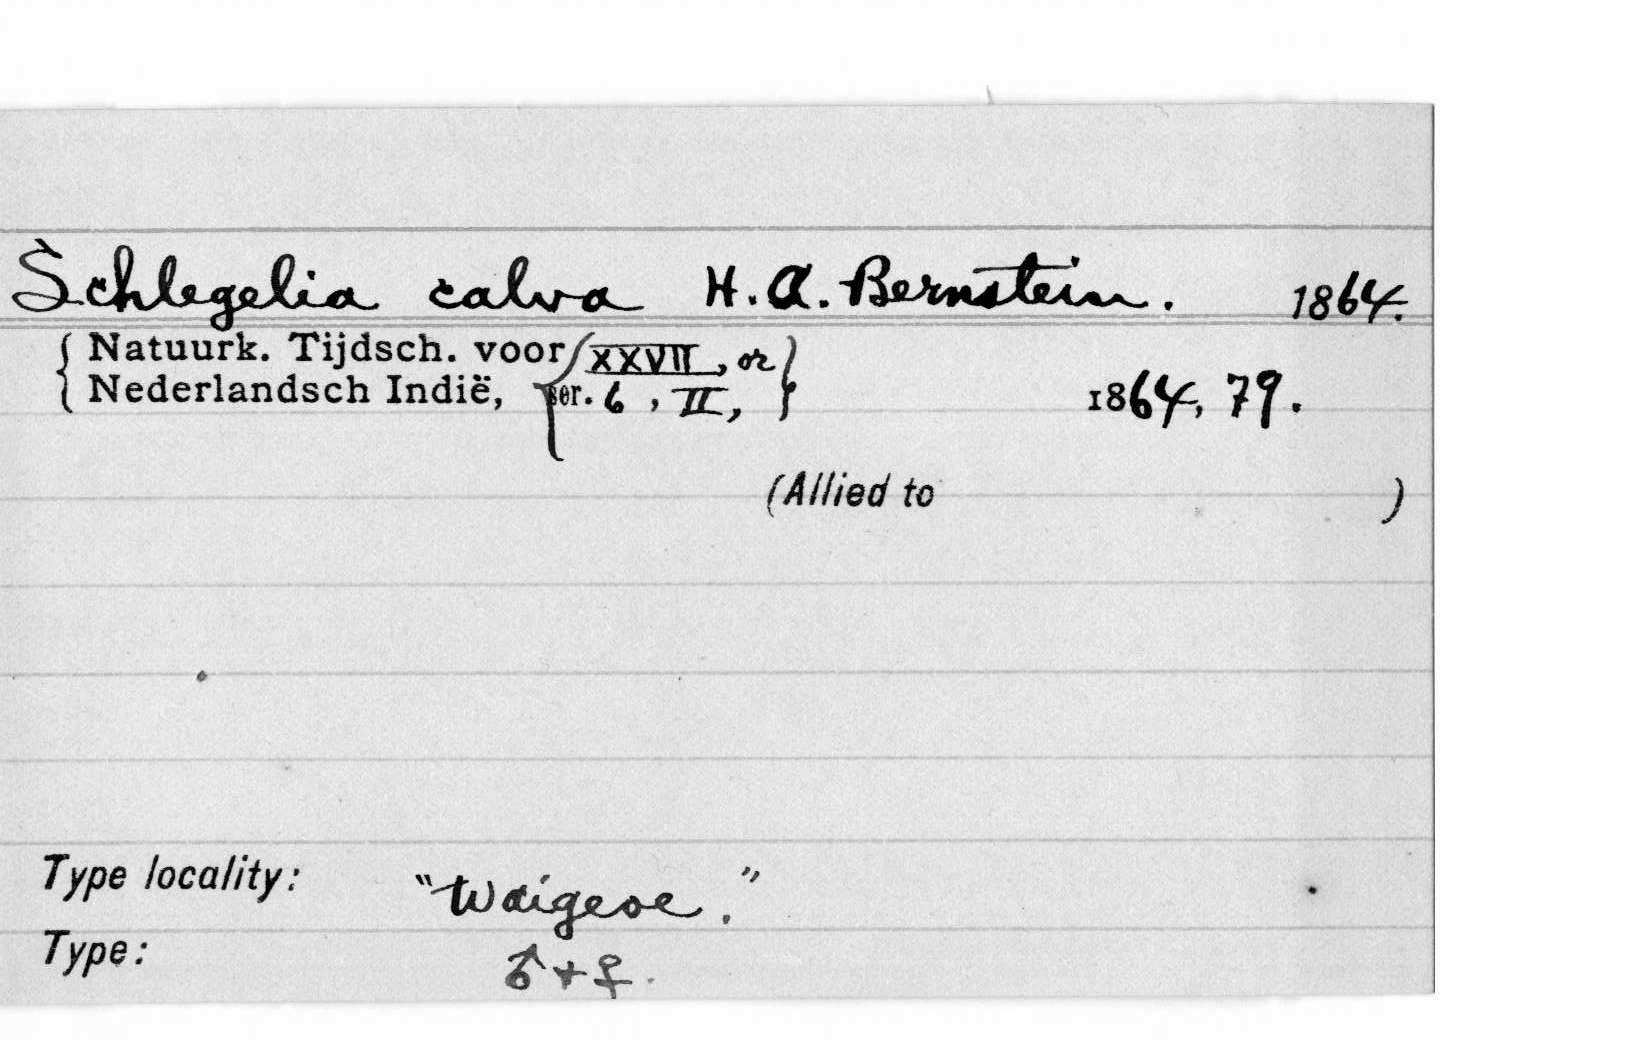 Schlegelia calva H. A. Bernstein. 1864.
{ Natuurk. Tijdsch. voor { XXVII, or }
{ Nederlandsch Indië, { ser. 6, II, } 1864, 79.
(Allied to )
Type locality: "Waigeoe."
Type: ♂ + ♀.